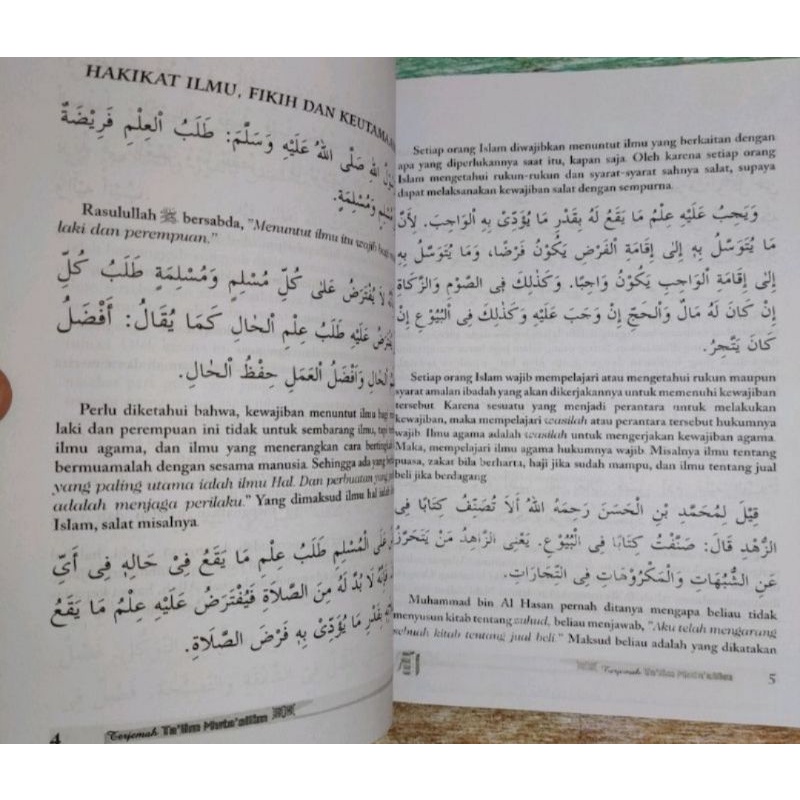 HAKIKAT ILMU, FIKIH DAN
اللهِ صَلَّى اللهُ عَلَيْهِ وَسَلَّمَ: طَلَبُ الْعِلْمِ فَرِيْضَةٌ
وَمُسْلِمَةٍ.
Rasulullah ﷺ bersabda, "Menuntut ilmu itu wajib
laki dan perempuan."
لَا يُفْتَرَضُ عَلَى كُلِّ مُسْلِمٍ وَمُسْلِمَةٍ طَلَبُ كُلِّ
عَلَيْهِ طَلَبُ عِلْمِ الْحَالِ كَمَا يُقَالُ: أَفْضَلُ
الْحَالِ وَأَفْضَلُ الْعَمَلِ حِفْظُ الْحَالِ.
Perlu diketahui bahwa, kewajiban menuntut ilmu bagi
laki dan perempuan ini tidak untuk sembarang ilmu,
ilmu agama, dan ilmu yang menerangkan cara
bermuamalah dengan sesama manusia. Sehingga ada yang
yang paling utama ialah ilmu Hal. Dan perbuatan yang
adalah menjaga perilaku." Yang dimaksud ilmu hal
Islam, salat misalnya.
عَلَى الْمُسْلِمِ طَلَبُ عِلْمِ مَا يَقَعُ فِيْ حَالِهِ فِي أَيِّ
فَإِنَّهُ لَا بُدَّ لَهُ مِنَ الصَّلَاةِ فَيُفْتَرَضُ عَلَيْهِ عِلْمُ مَا يَقَعُ
بِقَدْرِ مَا يُؤَدِّيْ بِهِ فَرْضَ الصَّلَاةِ.
4 Terjemah Ta'lim Muta'allim
Setiap orang Islam diwajibkan menuntut ilmu yang berkaitan dengan
apa yang diperlukannya saat itu, kapan saja. Oleh karena setiap orang
Islam mengetahui rukun-rukun dan syarat-syarat sahnya salat, supaya
dapat melaksanakan kewajiban salat dengan sempurna.
وَيَجِبُ عَلَيْهِ عِلْمُ مَا يَقَعُ لَهُ بِقَدْرِ مَا يُؤَدِّيْ بِهِ الْوَاجِبَ. لِأَنَّ
مَا يُتَوَسَّلُ بِهِ إِلَى إِقَامَةِ الْفَرْضِ يَكُوْنُ فَرْضًا، وَمَا يُتَوَسَّلُ بِهِ
إِلَى إِقَامَةِ الْوَاجِبِ يَكُوْنُ وَاجِبًا. وَكَذٰلِكَ فِي الصَّوْمِ وَالزَّكَاةِ
إِنْ كَانَ لَهُ مَالٌ وَالْحَجِّ إِنْ وَجَبَ عَلَيْهِ وَكَذٰلِكَ فِي الْبُيُوْعِ إِنْ
كَانَ يَتَّجِرُ.
Setiap orang Islam wajib mempelajari atau mengetahui rukun maupun
syarat amalan ibadah yang akan dikerjakannya untuk memenuhi kewajiban
tersebut Karena sesuatu yang menjadi perantara untuk melakukan
kewajiban, maka mempelajari wasilah atau perantara tersebut hukumnya
wajib. Ilmu agama adalah wasilah untuk mengerjakan kewajiban agama.
Maka, mempelajari ilmu agama hukumnya wajib. Misalnya ilmu tentang
puasa, zakat bila berharta, haji jika sudah mampu, dan ilmu tentang jual
beli jika berdagang
قِيْلَ لِمُحَمَّدِ بْنِ الْحَسَنِ رَحِمَهُ اللهُ أَلَا تُصَنِّفُ كِتَابًا فِي
الزُّهْدِ قَالَ: صَنَّفْتُ كِتَابًا فِي الْبُيُوْعِ. يَعْنِى الزَّاهِدُ مَنْ يَتَحَرَّزُ
عَنِ الشُّبُهَاتِ وَالْمَكْرُوْهَاتِ فِي التِّجَارَاتِ.
Muhammad bin Al Hasan pernah ditanya mengapa beliau tidak
menyusun kitab tentang zuhud, beliau menjawab, "Aku telah mengarang
sebuah kitab tentang jual beli." Maksud beliau adalah yang dikatakan
Terjemah Ta'lim Muta'allim 5